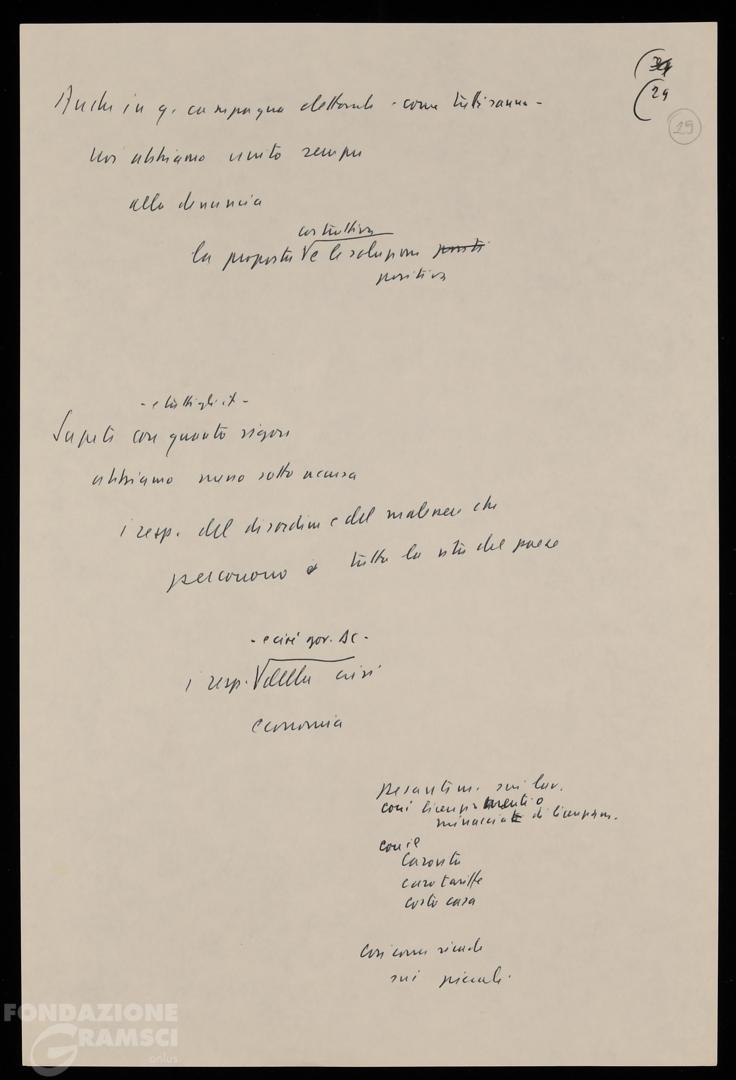 (34
(29
29
Anche in q. campagna elettorale - come tutti sanno -
noi abbiamo unito sempre
alla denuncia
costruttiva
la proposta √ e le soluzioni
positive
- e tutti gli it -
Sapete con quanto rigore
abbiamo messo sotto accusa
i resp. del disordine e del malessere che
percorrono tutta la vita del paese
- e cioè gov. DC -
i resp. √ della crisi
economia
pesantem. sui lav.
con i licenziamenti o
minaccia di licenziam.
con il
carovita
caro tariffe
costo casa
così come ricade
sui piccoli.
FONDAZIONE
GRAMSCI
onlus